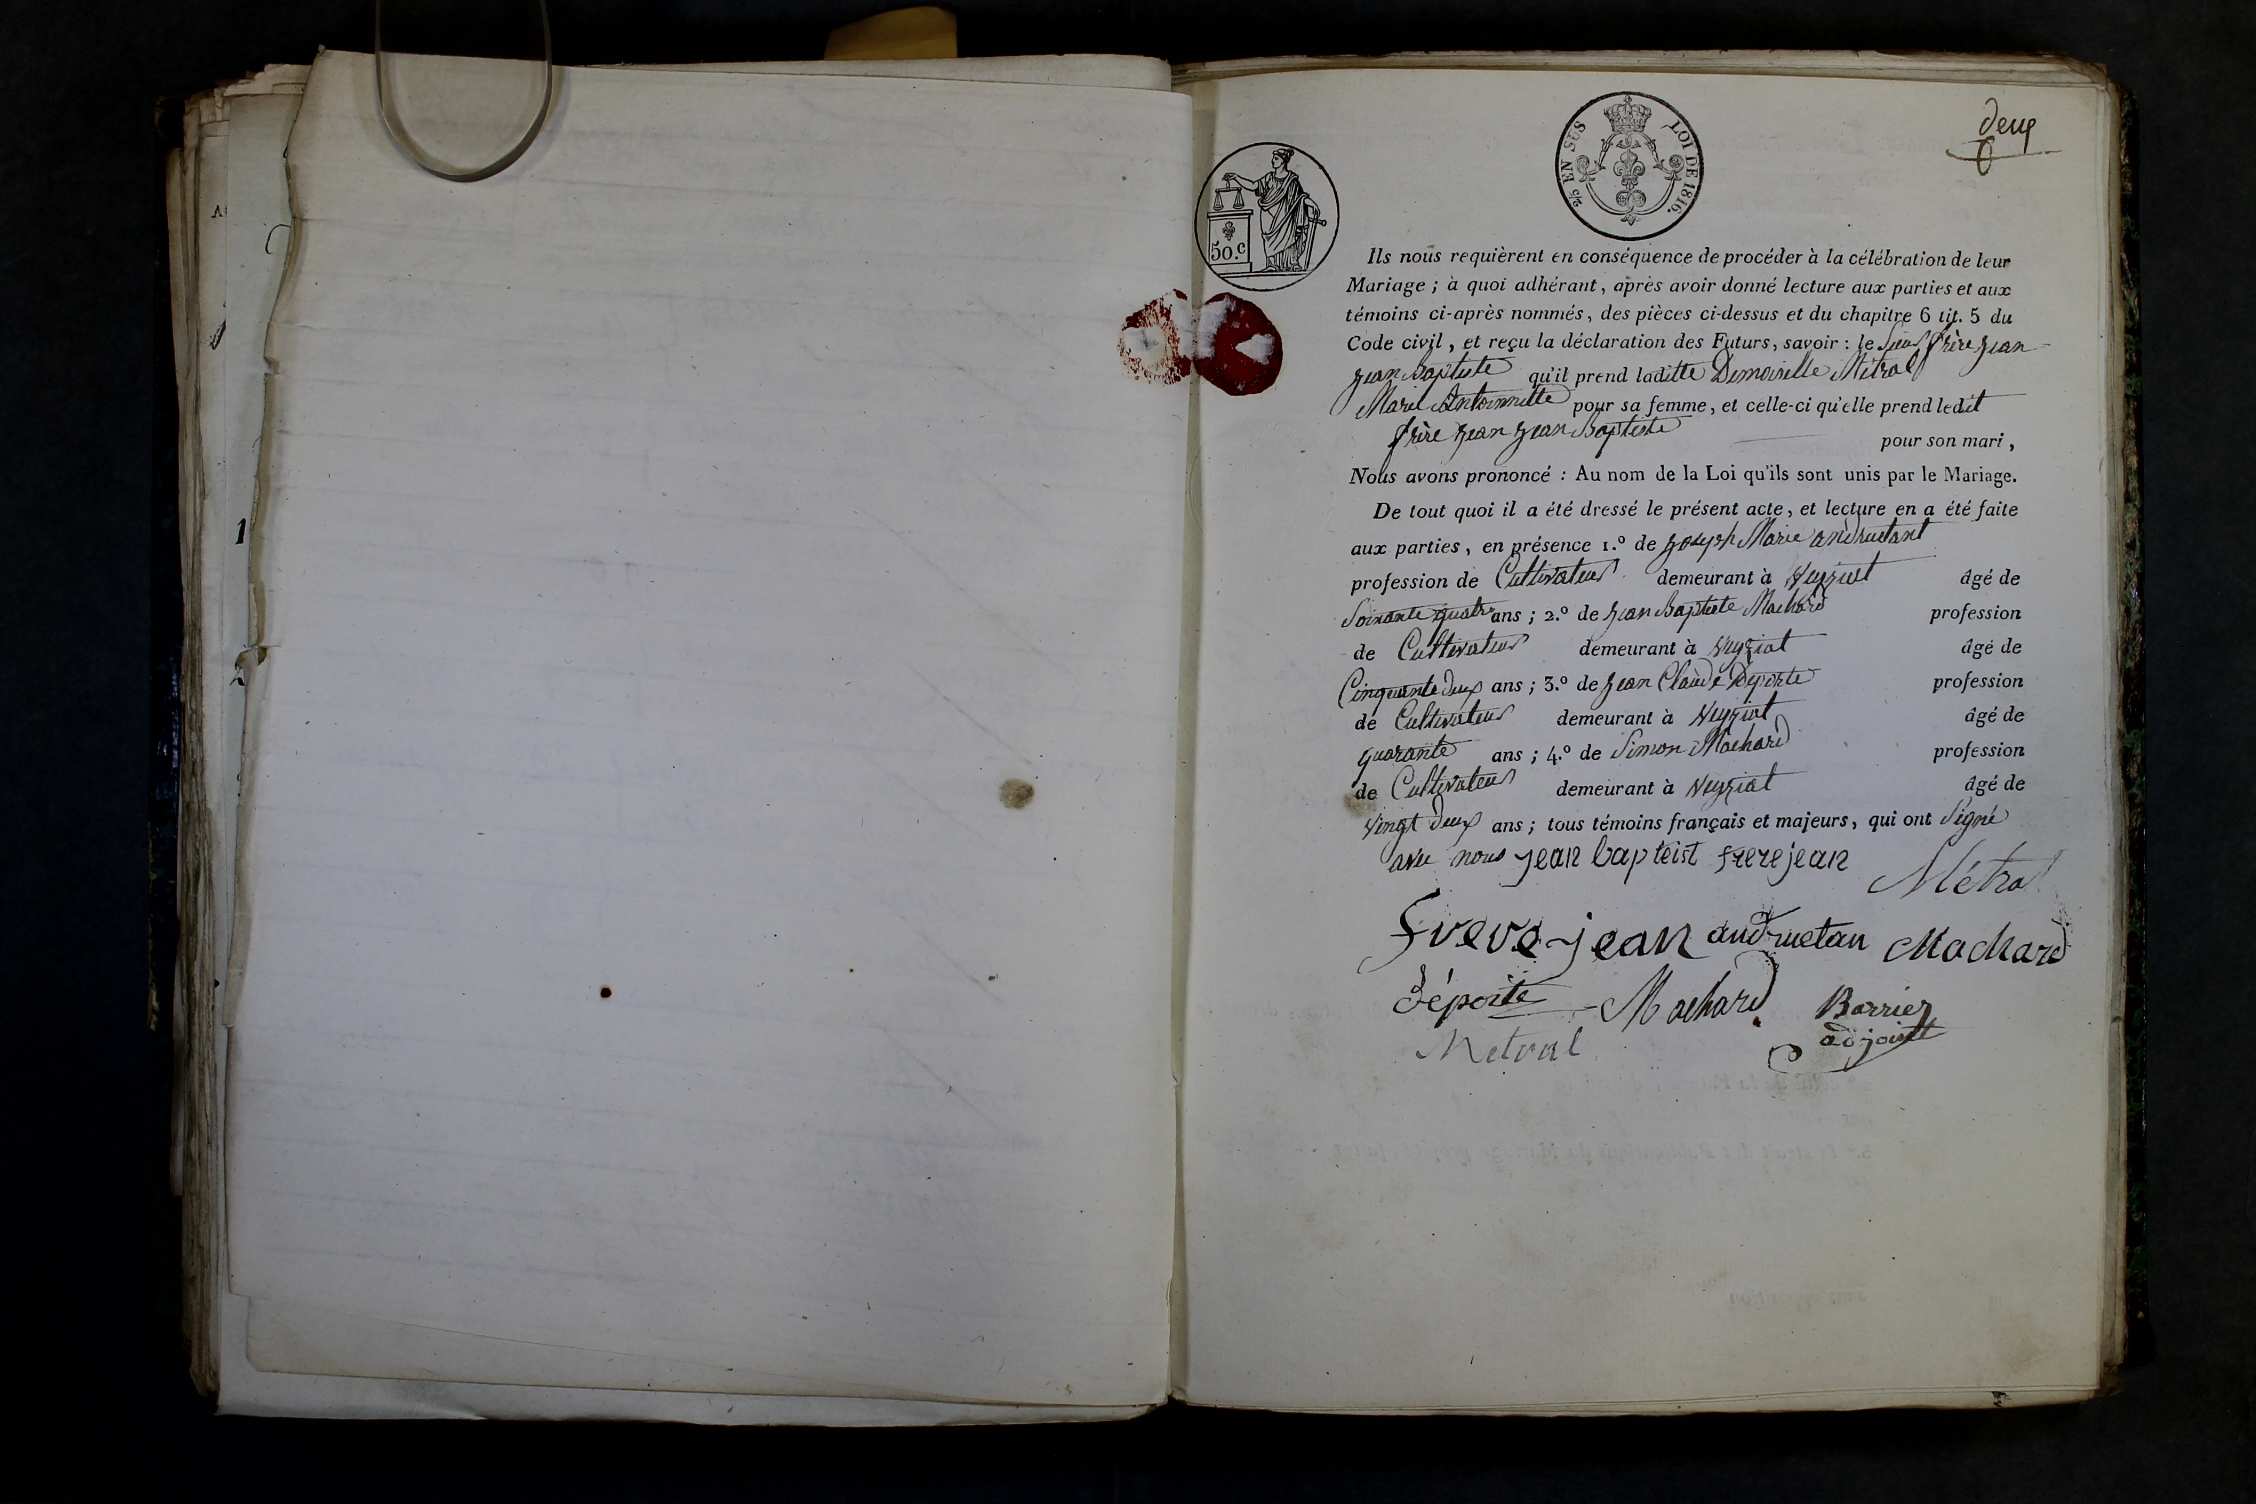 deux
2/5 EN SUS LOI DE 1816.
50.c
Ils nous requièrent en conséquence de procéder à la célébration de leur
Mariage ; à quoi adhérant, après avoir donné lecture aux parties et aux
témoins ci-après nommés, des pièces ci-dessus et du chapitre 6 tit. 5 du
Code civil, et reçu la déclaration des Futurs, savoir : le Sieur frère jean
jean Baptiste qu'il prend laditte Demoiselle Métral
Marie Antoinette pour sa femme, et celle-ci qu'elle prend ledit
frère jean jean Baptiste pour son mari,
Nous avons prononcé : Au nom de la Loi qu'ils sont unis par le Mariage.
De tout quoi il a été dressé le présent acte, et lecture en a été faite
aux parties, en présence 1.º de joseph Marie andruetant
profession de Cultivateur demeurant à Neyziat âgé de
Soixante quatre ans ; 2.º de jean Baptiste Machard profession
de Cultivateur demeurant à Neyziat âgé de
Cinquante deux ans ; 3.º de jean Claude Déporte profession
de Cultivateur demeurant à Neyziat âgé de
quarante ans ; 4.º de Simon Machard profession
de Cultivateur demeurant à Neyziat âgé de
vingt deux ans ; tous témoins français et majeurs, qui ont Signé
avec nous jean bapteist frerejean
Métral
frere-jean andruetan Machard
déporte Machard Barrier
Metral adjoint